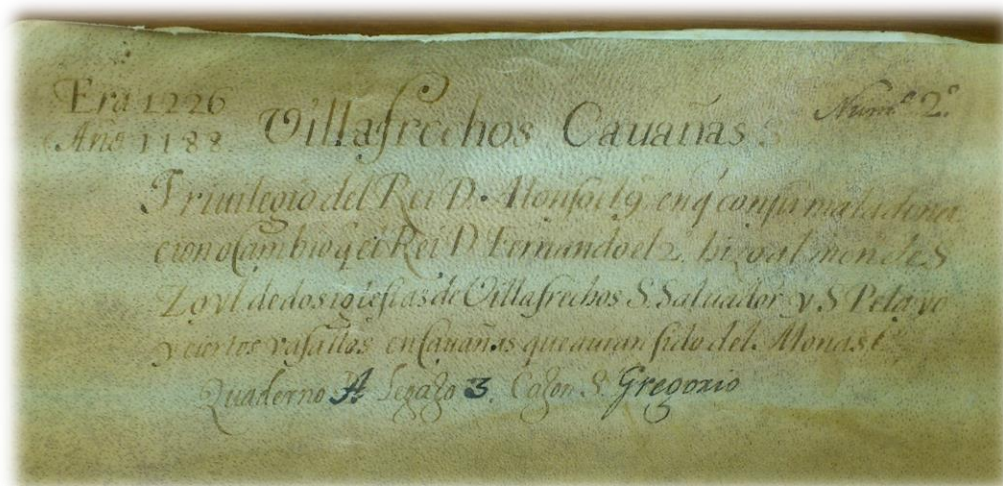 Era 1226
Año 1188 Villafrechos Cauañas. Num.º 2.º
Priuilegio del Rei D. Alonso el 9. en q confirma la dona
cion o Cambio q el Rei D. Fernando el 2. hizo al mon de S
Zoyl de dos iglesias de Villafrechos S. Saluador y S Pelayo
y ciertos vasallos en Cauañas que auian sido del Monast.º
Quaderno A Legago 3. Cagon S. Gregorio